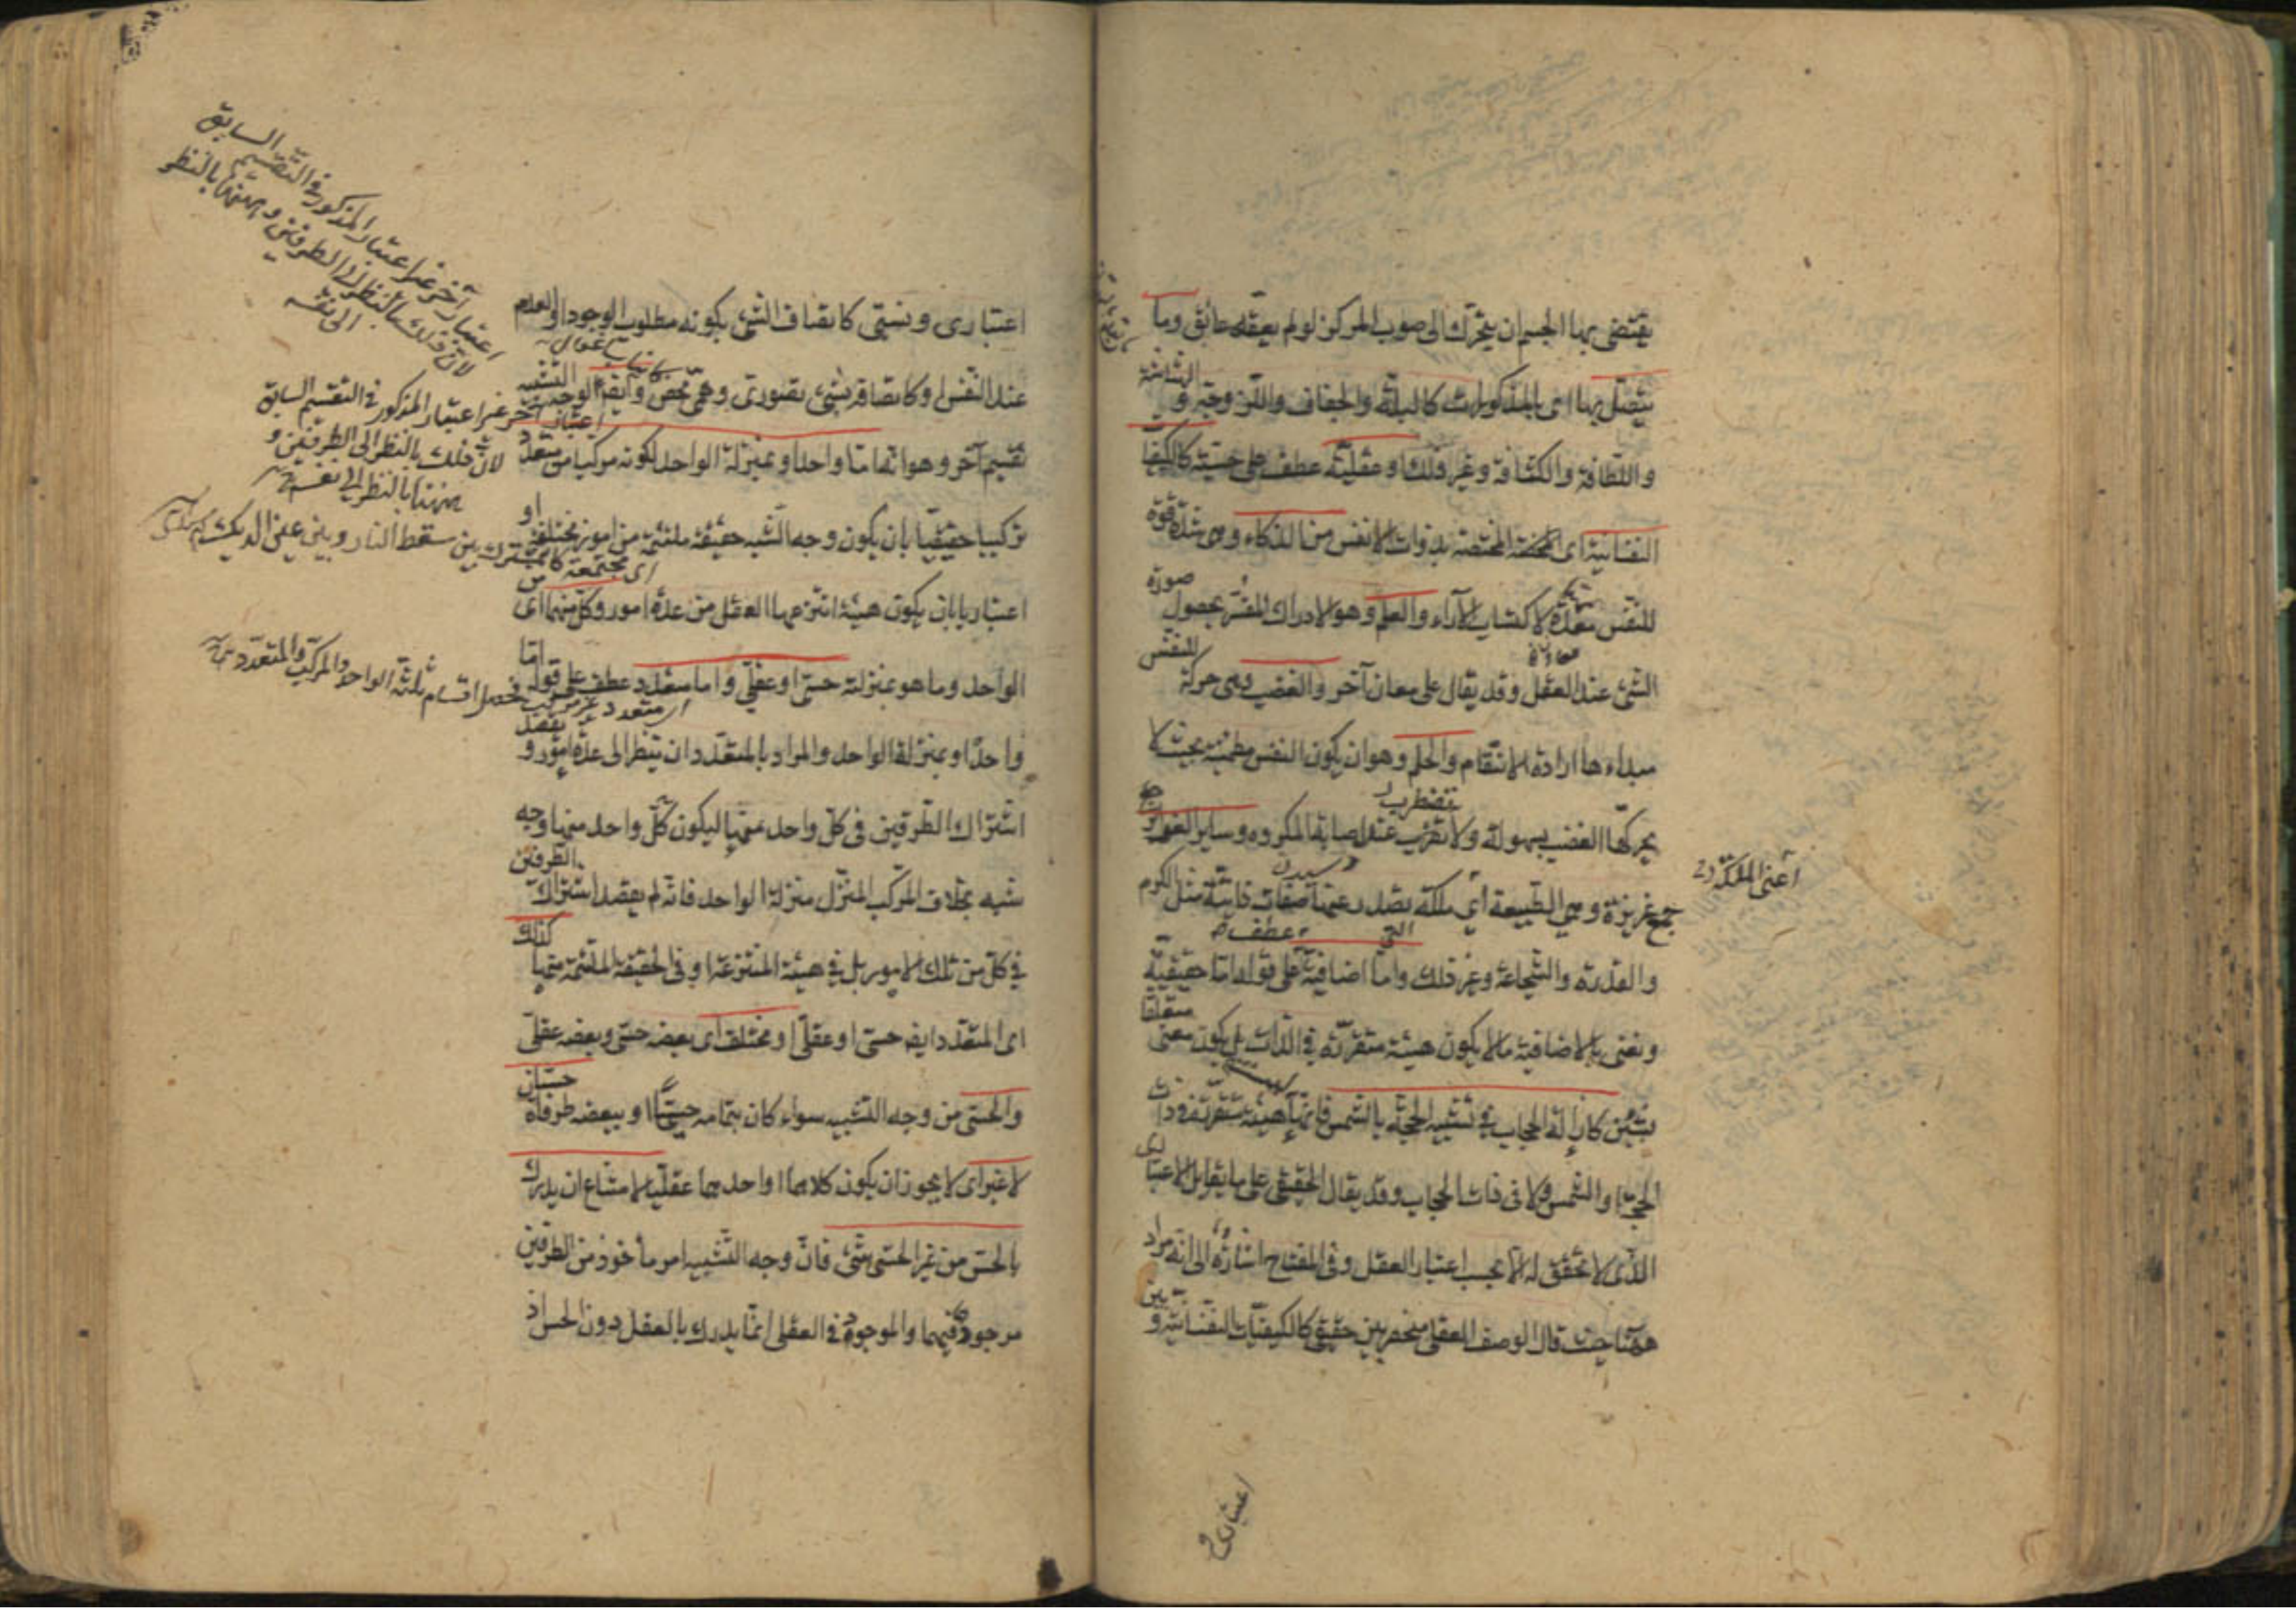 يقتضى بها الجسم ان يتحرّك الى صوب المركز لو لم يعقه عائق وما
يتصل بها اى بالمذكورات كالبلّة والجفاف واللزوجة والهشاشة
واللطافة والكثافة وغير ذلك او عقليّة عطف على حسيّة كالكيفيات
النفسانية اى المختصّة بذوات الانفس من الذكاء وهى شدّة قوة
للنفس معدّة لاكتساب الآراء والعلم وهو الادراك المفسّر بحصول صورة
الشئ عند العقل وقد يقال على معان آخر والغضب وهى حركة للنفس
مبداءها ارادة الانتقام والحلم وهو ان يكون النفس مطمئنة بحيث لا
يحركها الغضب بسهولة ولا تضطرب عند اصابة المكروه وساير الغرايز
جمع غريزة وهى الطبيعة اى ملكة تصدر عنها صفات ذاتيّة مثل الكرم
والقدرة والشجاعة وغير ذلك وامّا اضافية عطف على قوله امّا حقيقيّة
ونعنى بالاضافية ما لا يكون هيئة متقرّرة فى الذات بل يكون معنى متعلقا
بشيئين كازالة الحجاب فى تشبيه الحجّة بالشمس فانّها ليست هيئة متقرّرة فى ذات
الحجّة والشمس ولا فى ذات الحجاب وقد يقال الحقيقى على ما يقابل الاعتبارى
الذى لا تحقق له الا بحسب اعتبار العقل وفى المفتاح اشارة الى انه مراد
ههنا حيث قال الوصف العقلى منحصر بين حقيقى كالكيفيّات النفسانية وبين
اعتبارى و
اعنى الملكة
اعتبارى ونسبى كاتصاف الشئ بكونه مطلوب الوجود او العدم
عند النفس او كاتصافه بشئ تصورى وهمى محض وايضا لوجه التشبيه
تقسيم آخر وهو انه امّا واحد او بمنزلة الواحد لكونه مركبا من متعدد
تركيبا حقيقيّا بان يكون وجه الشبه حقيقة ملتئمة من امور مختلفة او
اعتباريا بان يكون هيئة انتزعها العقل من عدّة امور وكلّ منهما اى من
الواحد وما هو بمنزلته حسىّ او عقلىّ وامّا متعدد عطف على قوله امّا
واحد او بمنزلة الواحد والمراد بالمتعدّد ان ينظر الى عدّة امور ويقصد
اشتراك الطّرفين فى كلّ واحد منها ليكون كلّ واحد منها وجه
شبه بخلاف المركّب المنزّل منزلة الواحد فانّه لم يقصد اشتراك الطرفين
فى كلّ من تلك الامور بل فى هيئة المنتزعة او فى الحقيقة الملتئمة منها كذلك
اى المتعدّد ايضا حسىّ او عقلىّ او مختلف اى بعضه حسىّ وبعضه عقلىّ
والحسّى من وجه التشبيه سواء كان بتمامه حسيّا او ببعضه طرفاه حسيّان
لا غير اى لا يجوز ان يكون كلاهما او احدهما عقليّا لامتناع ان يدرك
بالحسّ من غير الحسّى شئ فانّ وجه التشبيه امر مأخوذ من الطرفين
موجود فيهما والموجود فى العقلى انمّا يدرك بالعقل دون الحس اذ
اعتبار آخر غير اعتبار المذكور فى التقسيم السابق
لانّ ذلك بالنظر الى الطرفين وههنا بالنظر
الى نفسه
اعتبار آخر غير اعتبار المذكور فى التقسيم السابق
لانّ ذلك بالنظر الى الطرفين و
ههنا بالنظر الى نفسه
اى مجتمعة كما يشترك بين سقط النار وبين عين الديك
اى متعدد غير مركب فحصل اقسام ثلثة الواحد والمركّب والمتعدد